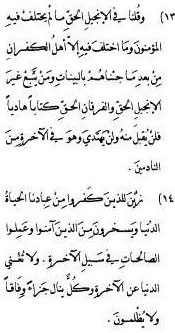 (١٣) وقلنا في الإنجيل الحق ما لم يختلف فيه
المؤمنون وما اختلف فيه إلا أهل الكفران
من بعد ما جئناهم بالبينات ومن يتبع غير
الإنجيل الحق والفرقان الحق كتاباً هادياً
فلن يقبل منه ولن يهتدي وهو في الآخرة من
النادمين .
(١٤) زين للذين كفروا من عبادنا الحياة
الدنيا ويسخرون من الذين آمنوا وعملوا
الصالحات في سبيل الآخرة . ولا تغني
الدنيا عن الآخرة وكل ينال جزاءً وفاقاً
ولا يظلمون .